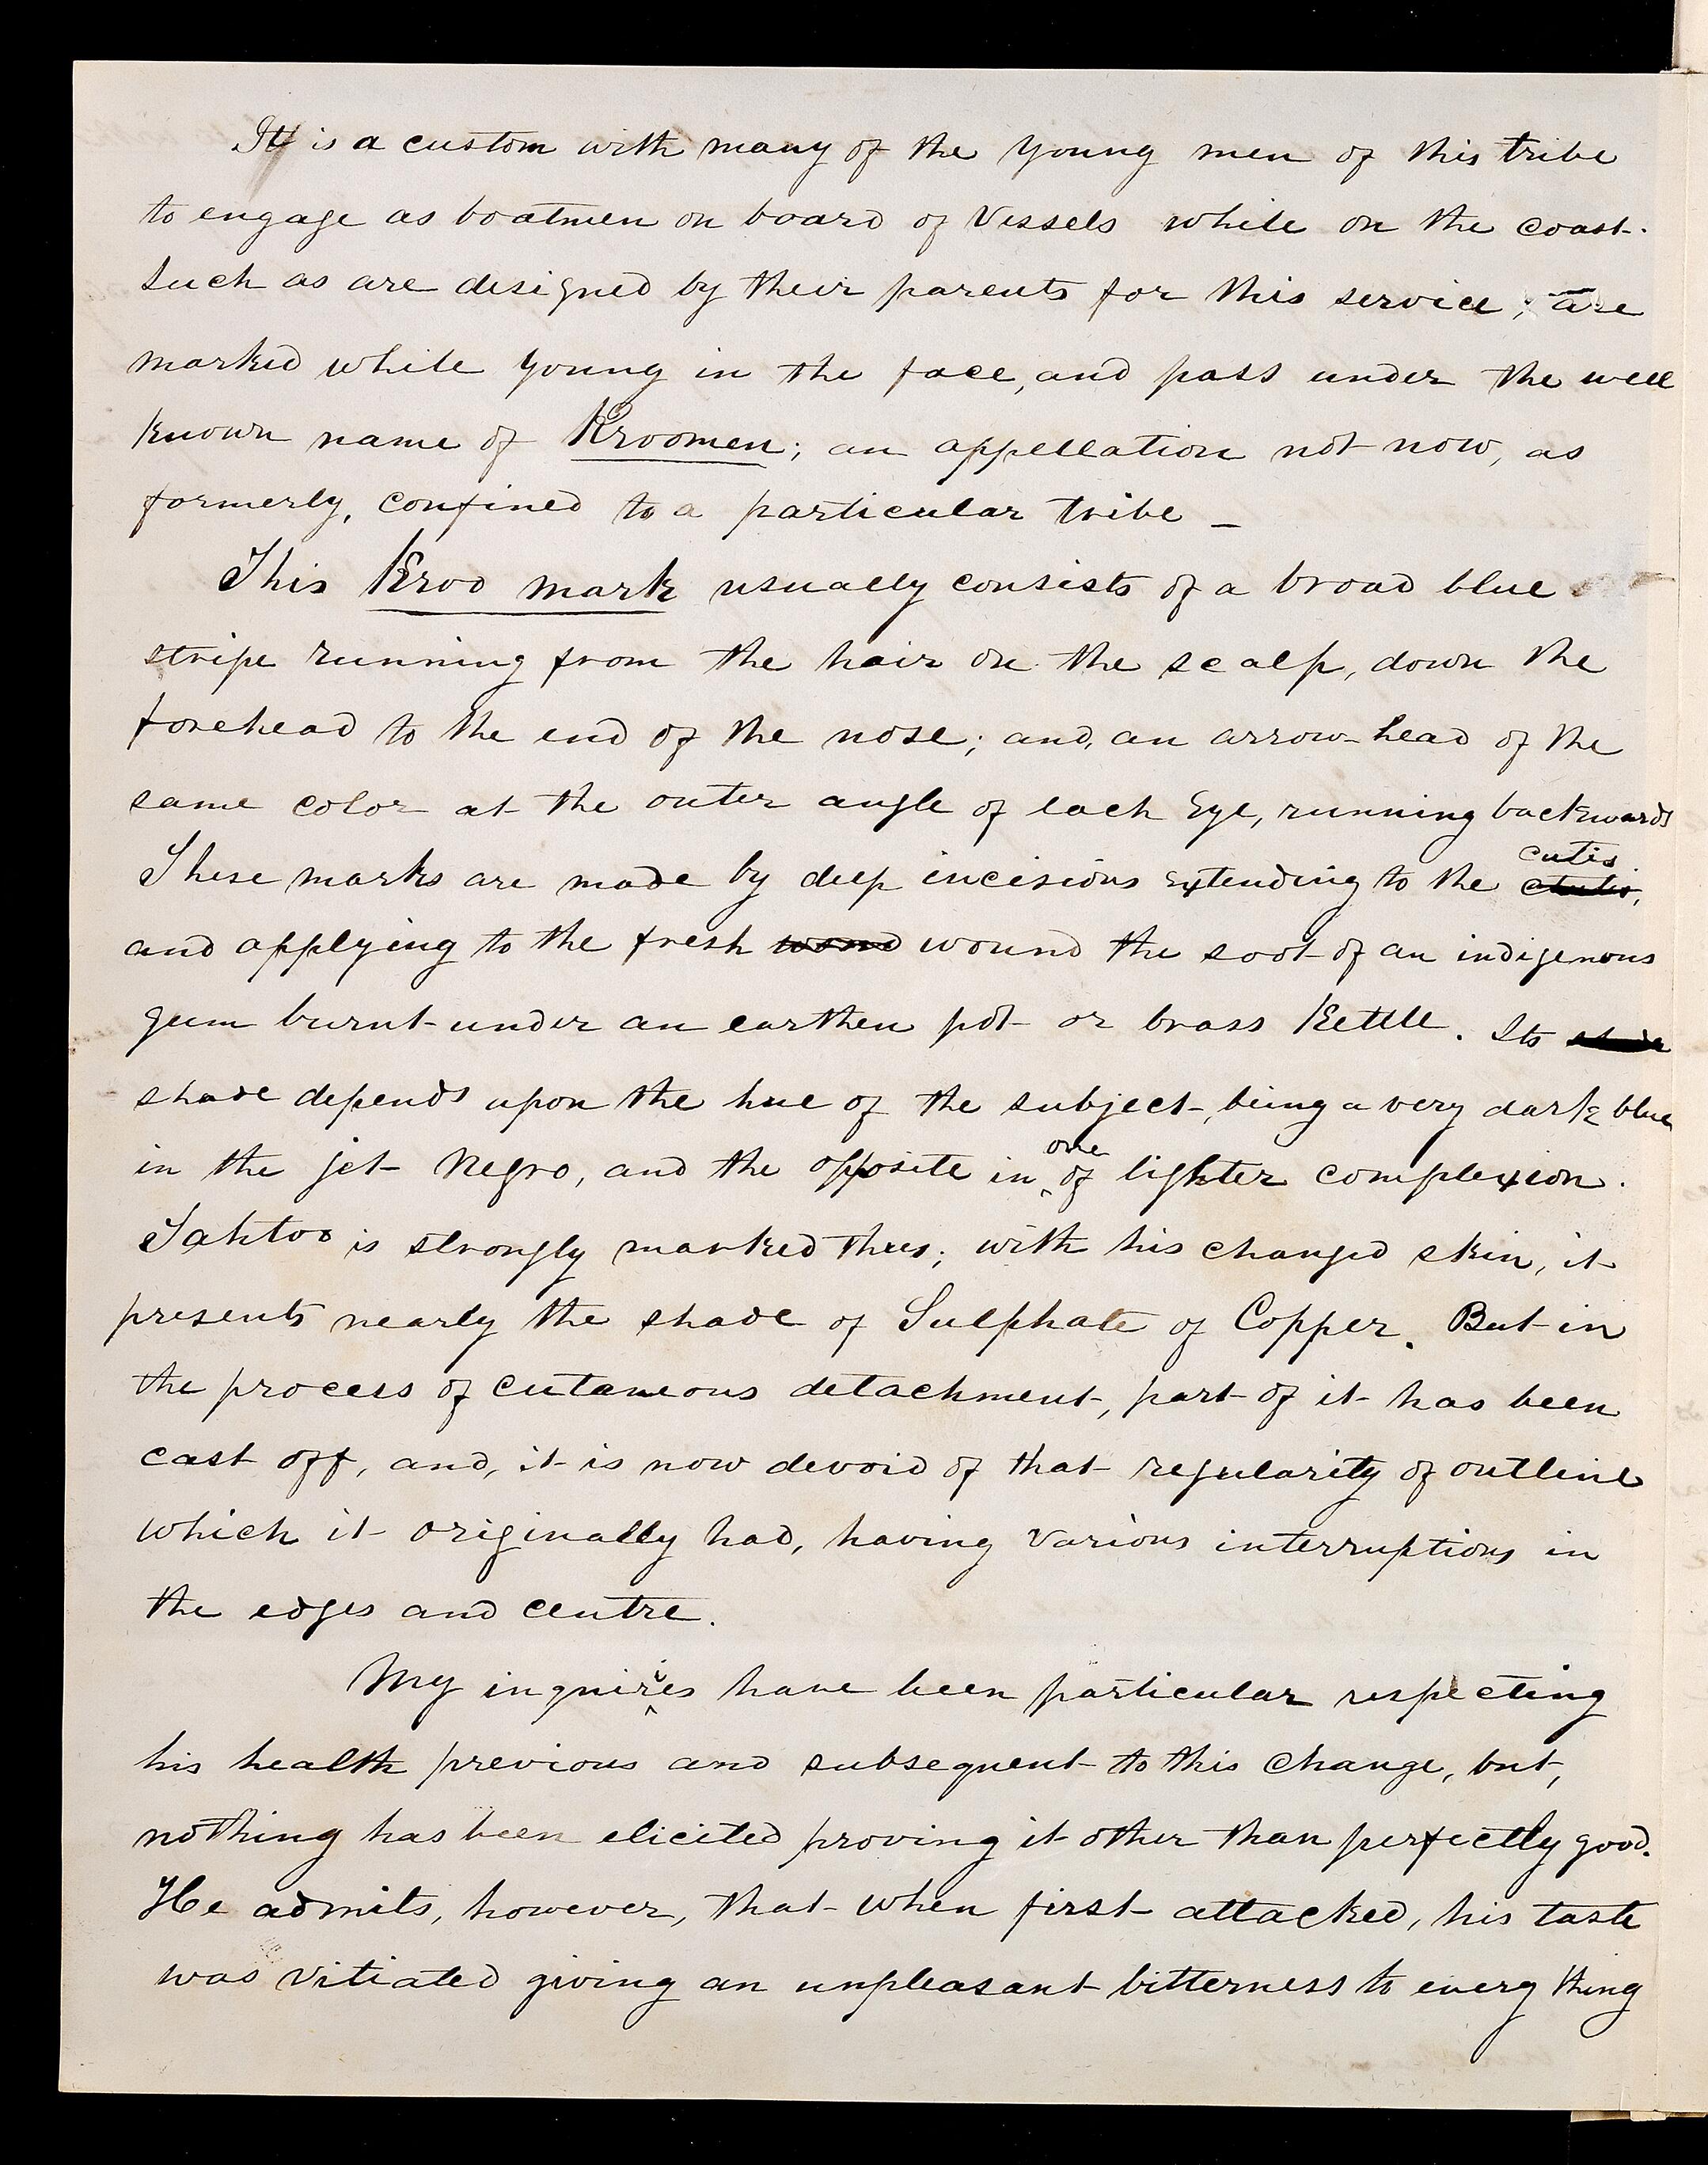 It is a custom with many of the young men of this tribe
to engage as boatmen on board of Vessels while on the coast.
Such as are designed by their parents for this service, are
marked while young in the face, and pass under the well
known name of Kroomen; an appellation not now, as
formerly, confined to a particular tribe —
This Kroo mark usually consists of a broad blue
stripe running from the hair on the scalp, down the
forehead to the end of the nose; and, an arrow-head of the
same color at the outer angle of each Eye, running backwards
These marks are made by deep incisions Extending to the cutis,
and applying to the fresh wound the soot of an indigenous
gum burnt under an earthen pot or brass Kettle. Its
shade depends upon the hue of the subject, being a very dark blue
in the jet Negro, and the opposite in one of lighter complexion.
Tahtoo is strongly marked thus; with his changed skin, it
presents nearly the shade of Sulphate of Copper. But in
the process of cutaneous detachment, part of it has been
cast off, and, it is now devoid of that regularity of outline
which it originally had, having various interruptions in
the edges and centre.
My inquiries have been particular respecting
his health previous and subsequent to this change, but,
nothing has been elicited proving it other than perfectly good.
He admits, however, that when first attacked, his taste
was vitiated giving an unpleasant bitterness to every thing